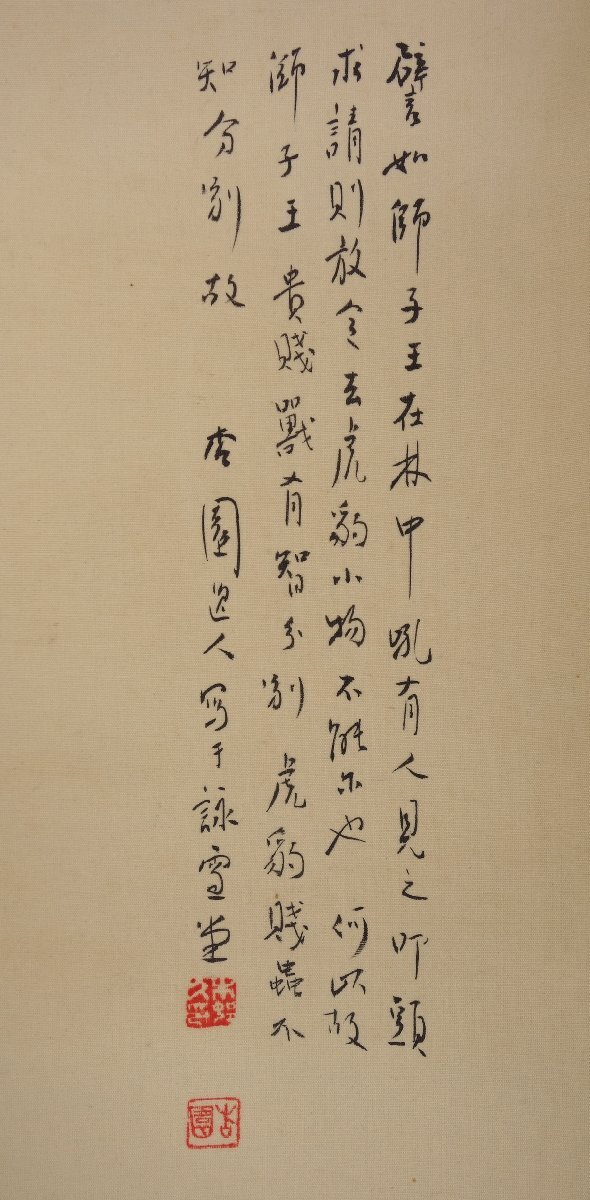 譬如師子王在林中吼有人見之叩頭
求請則放令去虎豹小物不能尔也何以故
師子王貴賤獸有智分別虎豹賤蟲不
知分別故 園人寫于詠雪堂